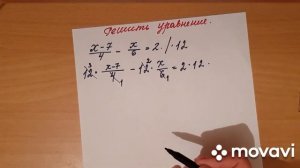 Решить уравнение.
x-7/4 - x/6 = 2 · /· 12
12³ · x-7/4₁ - 12² · x/6₁ = 2 · 12 ·
movavi